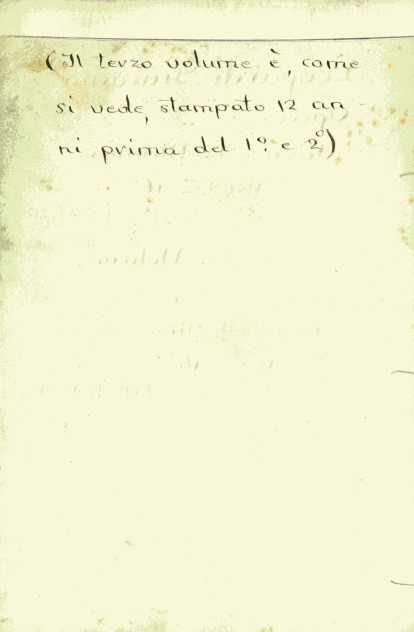 (Il terzo volume è, come
si vede, stampato 12 an
ni prima del 1º. e 2º)